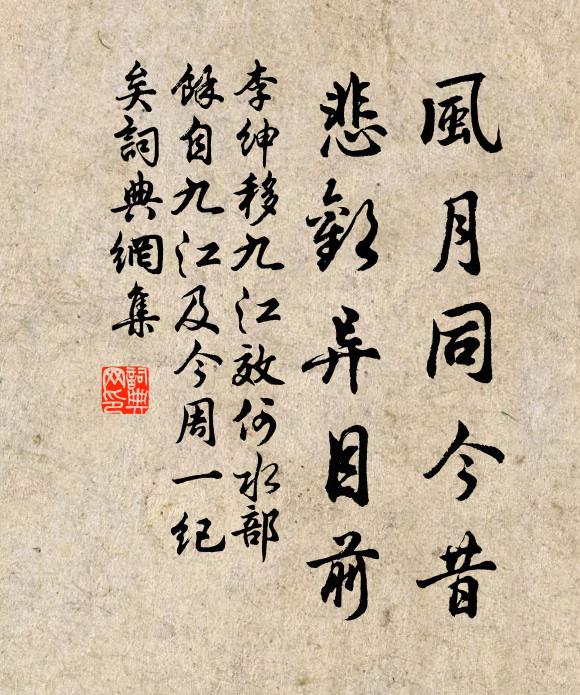 風月同今昔
悲歡异目前
李紳移九江效何水部
餘自九江及今周一纪
矣詞典網集
詞典
网印